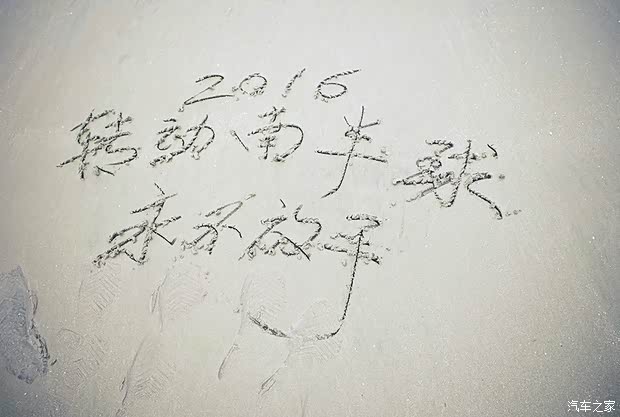 2016
转动南半球
永不放手
汽车之家